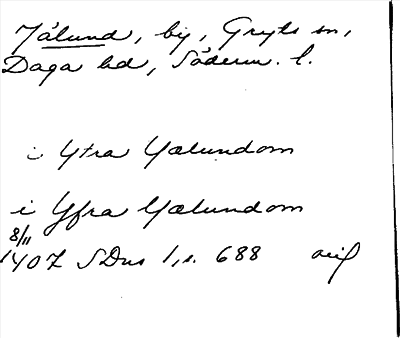 Jälund, by, Gryts sn,
Daga hd, Söderm. l.
i Ytra Yælundom
i Yfra Yælundom
8/11
1407 SDns 1, s. 688 orig